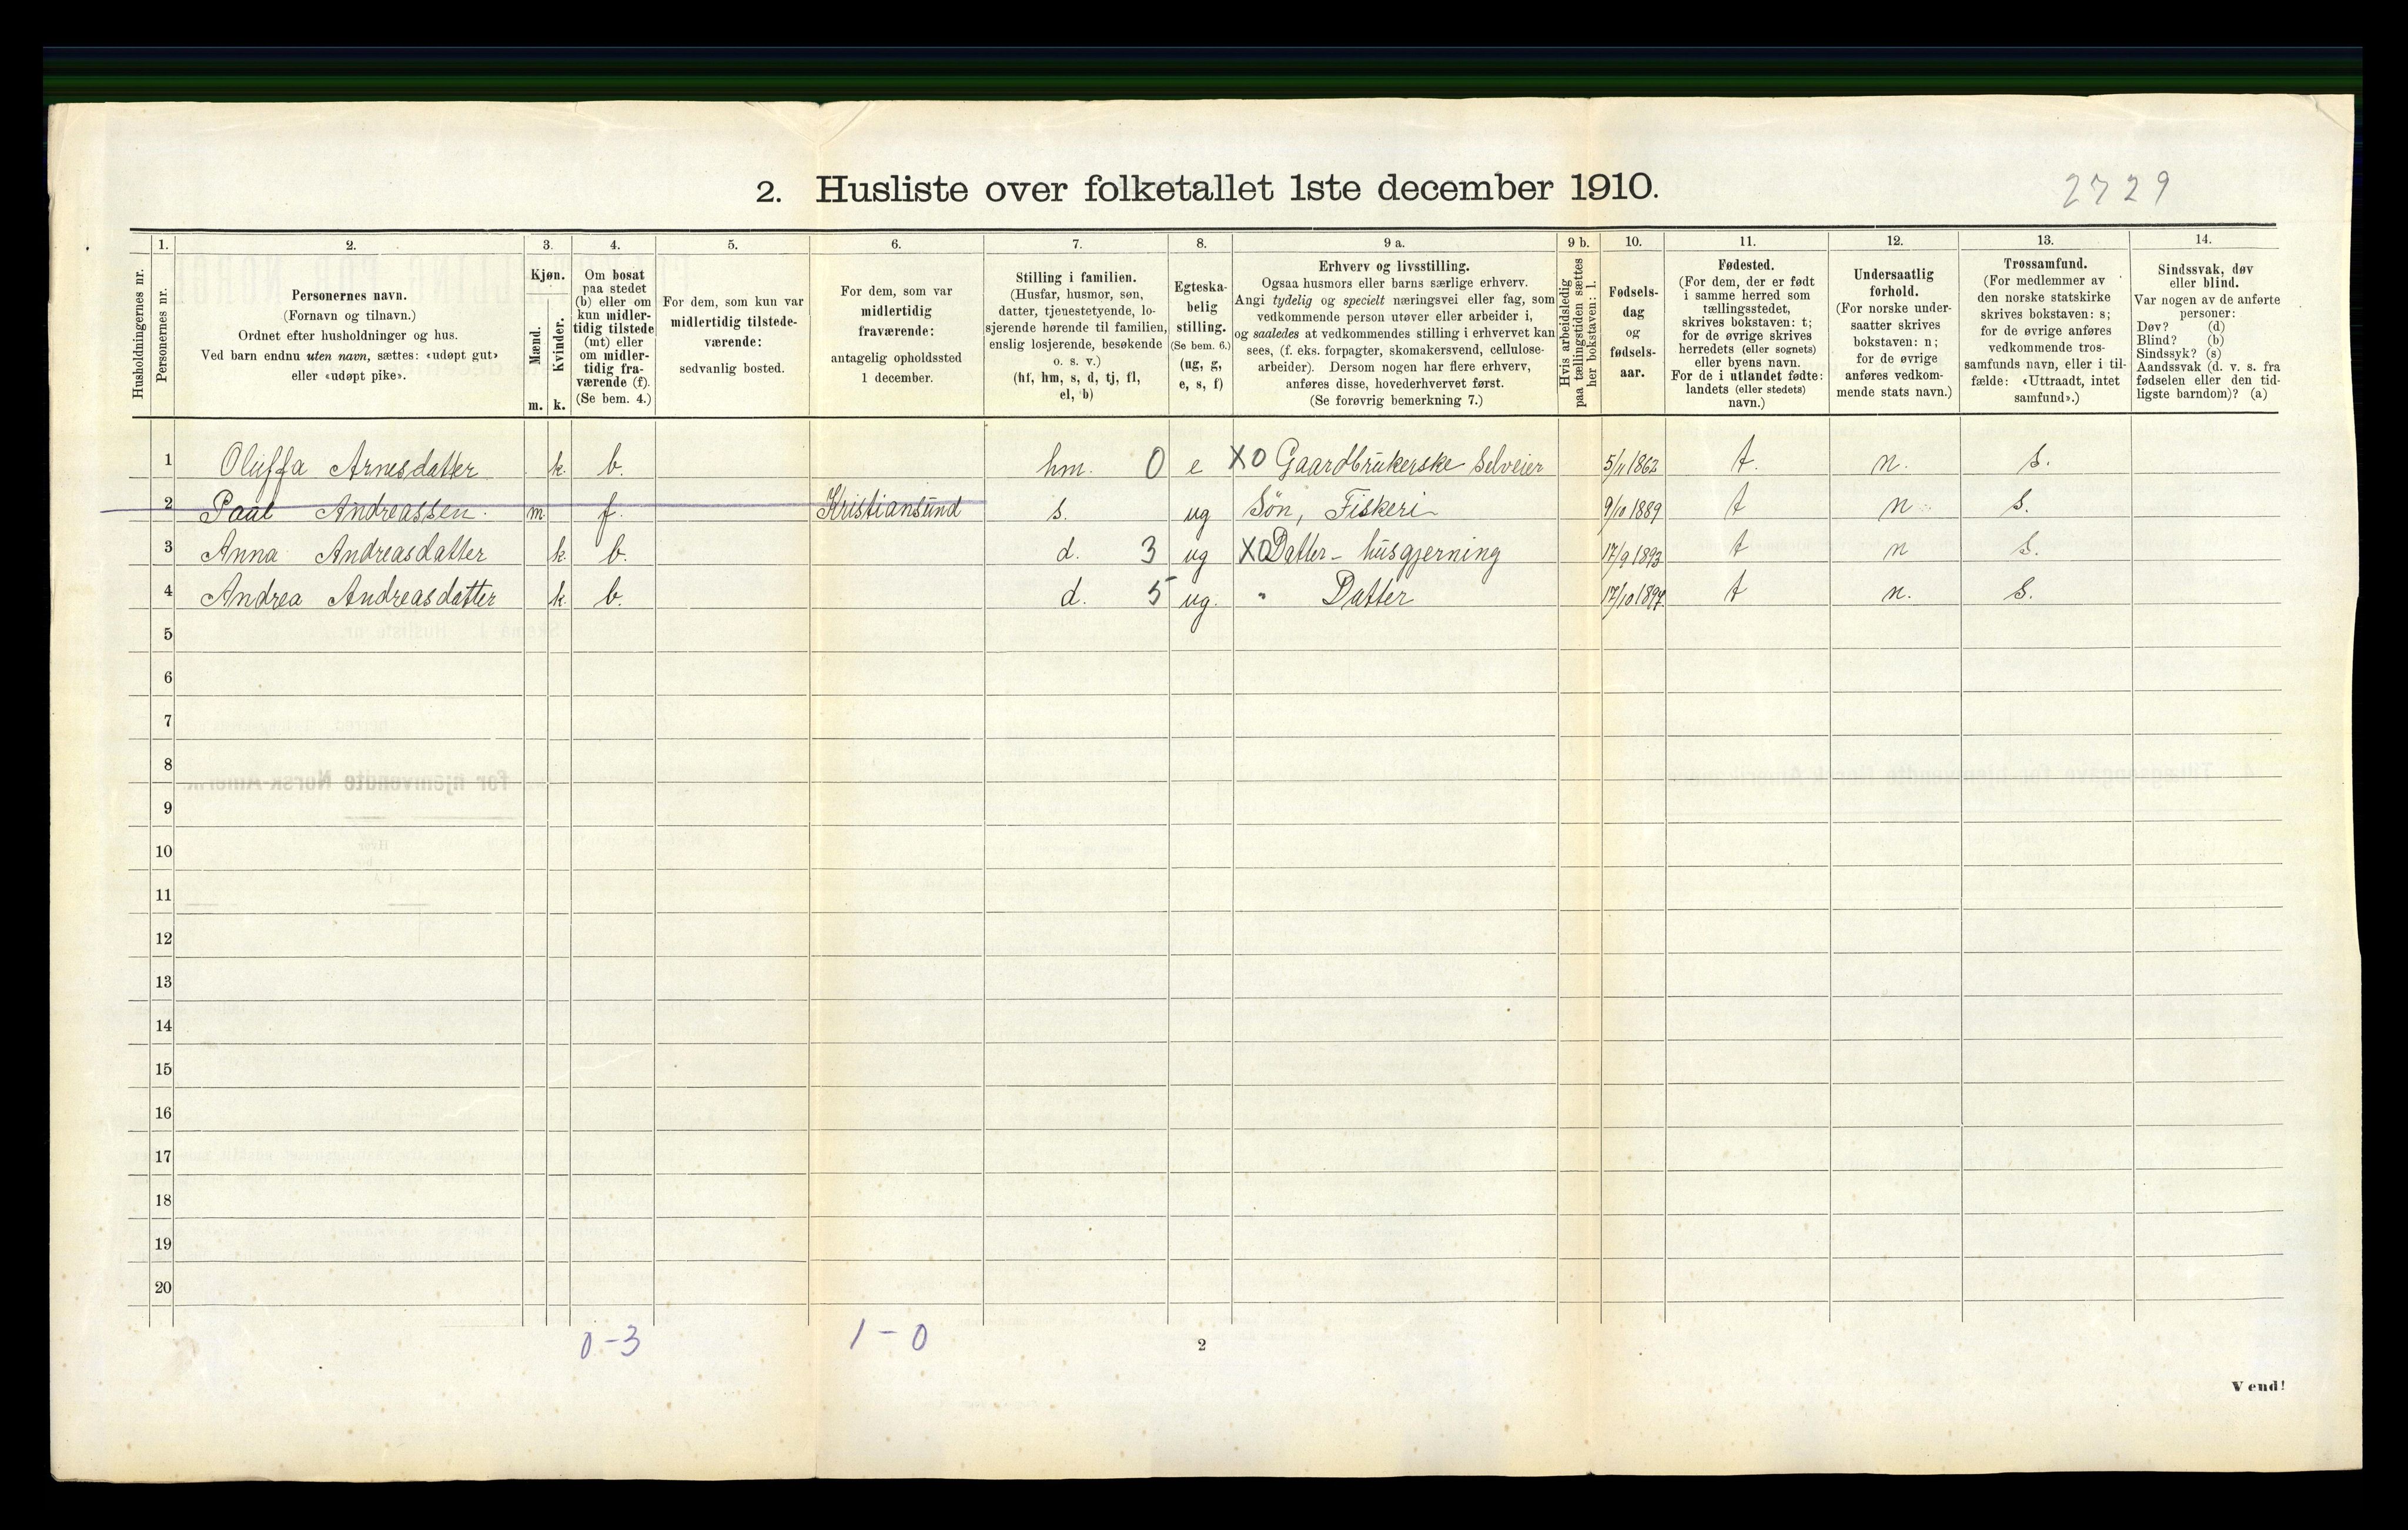 2. Husliste over folketallet 1ste december 1910.
2729
1. 2. 3. 4. 5. 6. 7. 8. 9 a. 9 b. 10. 11. 12. 13. 14.
Husholdningernes nr.
Personernes nr.
Personernes navn.
(Fornavn og tilnavn.)
Ordnet efter husholdninger og hus.
Ved barn endnu uten navn, sættes: «udøpt gut»
eller «udøpt pike».
Kjøn.
Mænd.
Kvinder.
m. k.
Om bosat
paa stedet
(b) eller om
kun midler-
tidig tilstede
(mt) eller
om midler-
tidig fra-
værende (f).
(Se bem. 4.)
For dem, som kun var
midlertidig tilstede-
værende:
sedvanlig bosted.
For dem, som var
midlertidig
fraværende:
antagelig opholdssted
1 december.
Stilling i familien.
(Husfar, husmor, søn,
datter, tjenestetyende, lo-
sjerende hørende til familien,
enslig losjerende, besøkende
o. s. v.)
(hf, hm, s, d, tj, fl,
el, b)
Egteska-
belig
stilling.
(Se bem. 6.)
(ug, g,
e, s, f)
Erhverv og livsstilling.
Ogsaa husmors eller barns særlige erhverv.
Angi tydelig og specielt næringsvei eller fag, som
vedkommende person utøver eller arbeider i,
og saaledes at vedkommendes stilling i erhvervet kan
sees, (f. eks. forpagter, skomakersvend, cellulose-
arbeider). Dersom nogen har flere erhverv,
anføres disse, hovederhvervet først.
(Se forøvrig bemerkning 7.)
Hvis arbeidsledig
paa tællingstiden sættes
her bokstaven: l.
Fødsels-
dag
og
fødsels-
aar.
Fødested.
(For dem, der er født
i samme herred som
tællingsstedet,
skrives bokstaven: t;
for de øvrige skrives
herredets (eller sognets)
eller byens navn.
For de i utlandet fødte:
landets (eller stedets)
navn.)
Undersaatlig
forhold.
(For norske under-
saatter skrives
bokstaven: n;
for de øvrige
anføres vedkom-
mende stats navn.)
Trossamfund.
(For medlemmer av
den norske statskirke
skrives bokstaven: s;
for de øvrige anføres
vedkommende tros-
samfunds navn, eller i til-
fælde: «Uttraadt, intet
samfund».)
Sindssvak, døv
eller blind.
Var nogen av de anførte
personer:
Døv? (d)
Blind? (b)
Sindssyk? (s)
Aandssvak (d. v. s. fra
fødselen eller den tid-
ligste barndom)? (a)
1 Oluffa Arnesdatter k. b. hm. 0 e X0 Gaardbrukerske Selveier 5/11 1862 t. n. s.
2 Paal Andreassen. m. f. Kristiansund s. ug Søn, Fiskeri 9/10 1889 t n. s.
3 Anna Andreasdatter k. b. d. 3 ug X0 Datter - husgjerning 17/9 1893 t n s.
4 Andrea Andreasdatter k. b. d. 5 ug. " Datter 17/10 1897 t n. s.
5
6
7
8
9
10
11
12
13
14
15
16
17
18
19
20
0-3 1-0
2
Vend!